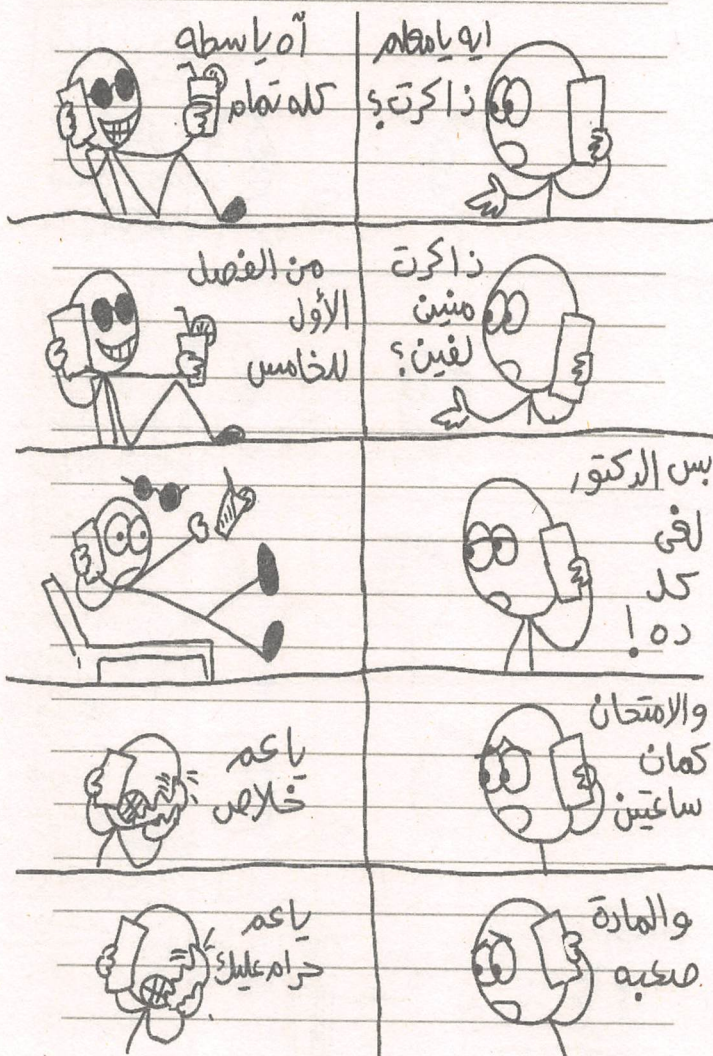 ايه يا معلم
ذاكرت؟
آه يا سطه
كله تمام
ذاكرت
منين
لفين؟
من الفصل
الأول
للخامس
بس الدكتور
لغى
كل
ده!
والامتحان
كمان
ساعتين
يا عم
خلاص
والمادة
صعبه
يا عم
حرام عليك